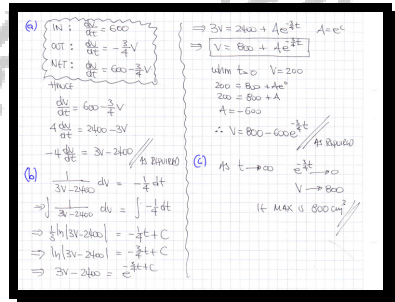 (a) IN : dv/dt = 600
OUT : dv/dt = -3/4 V
NET : dv/dt = 600 - 3/4 V
HENCE
dv/dt = 600 - 3/4 V
4 dv/dt = 2400 - 3V
-4 dv/dt = 3V - 2400
AS REQUIRED
(b) 1/(3V-2400) dv = -1/4 dt
⇒ ∫ 1/(3V-2400) dv = ∫ -1/4 dt
⇒ 1/3 ln|3V-2400| = -1/4 t + C
⇒ ln|3V-2400| = -3/4 t + C
⇒ 3V - 2400 = e^(-3/4 t + C)
⇒ 3V = 2400 + Ae^(-3/4 t) A = e^c
⇒ V = 800 + Ae^(-3/4 t)
when t=0 V=200
200 = 800 + Ae^0
200 = 800 + A
A = -600
∴ V = 800 - 600e^(-3/4 t)
AS REQUIRED
(c) AS t → ∞ e^(-3/4 t) → 0
V → 800
IE MAX IS 800 cm³